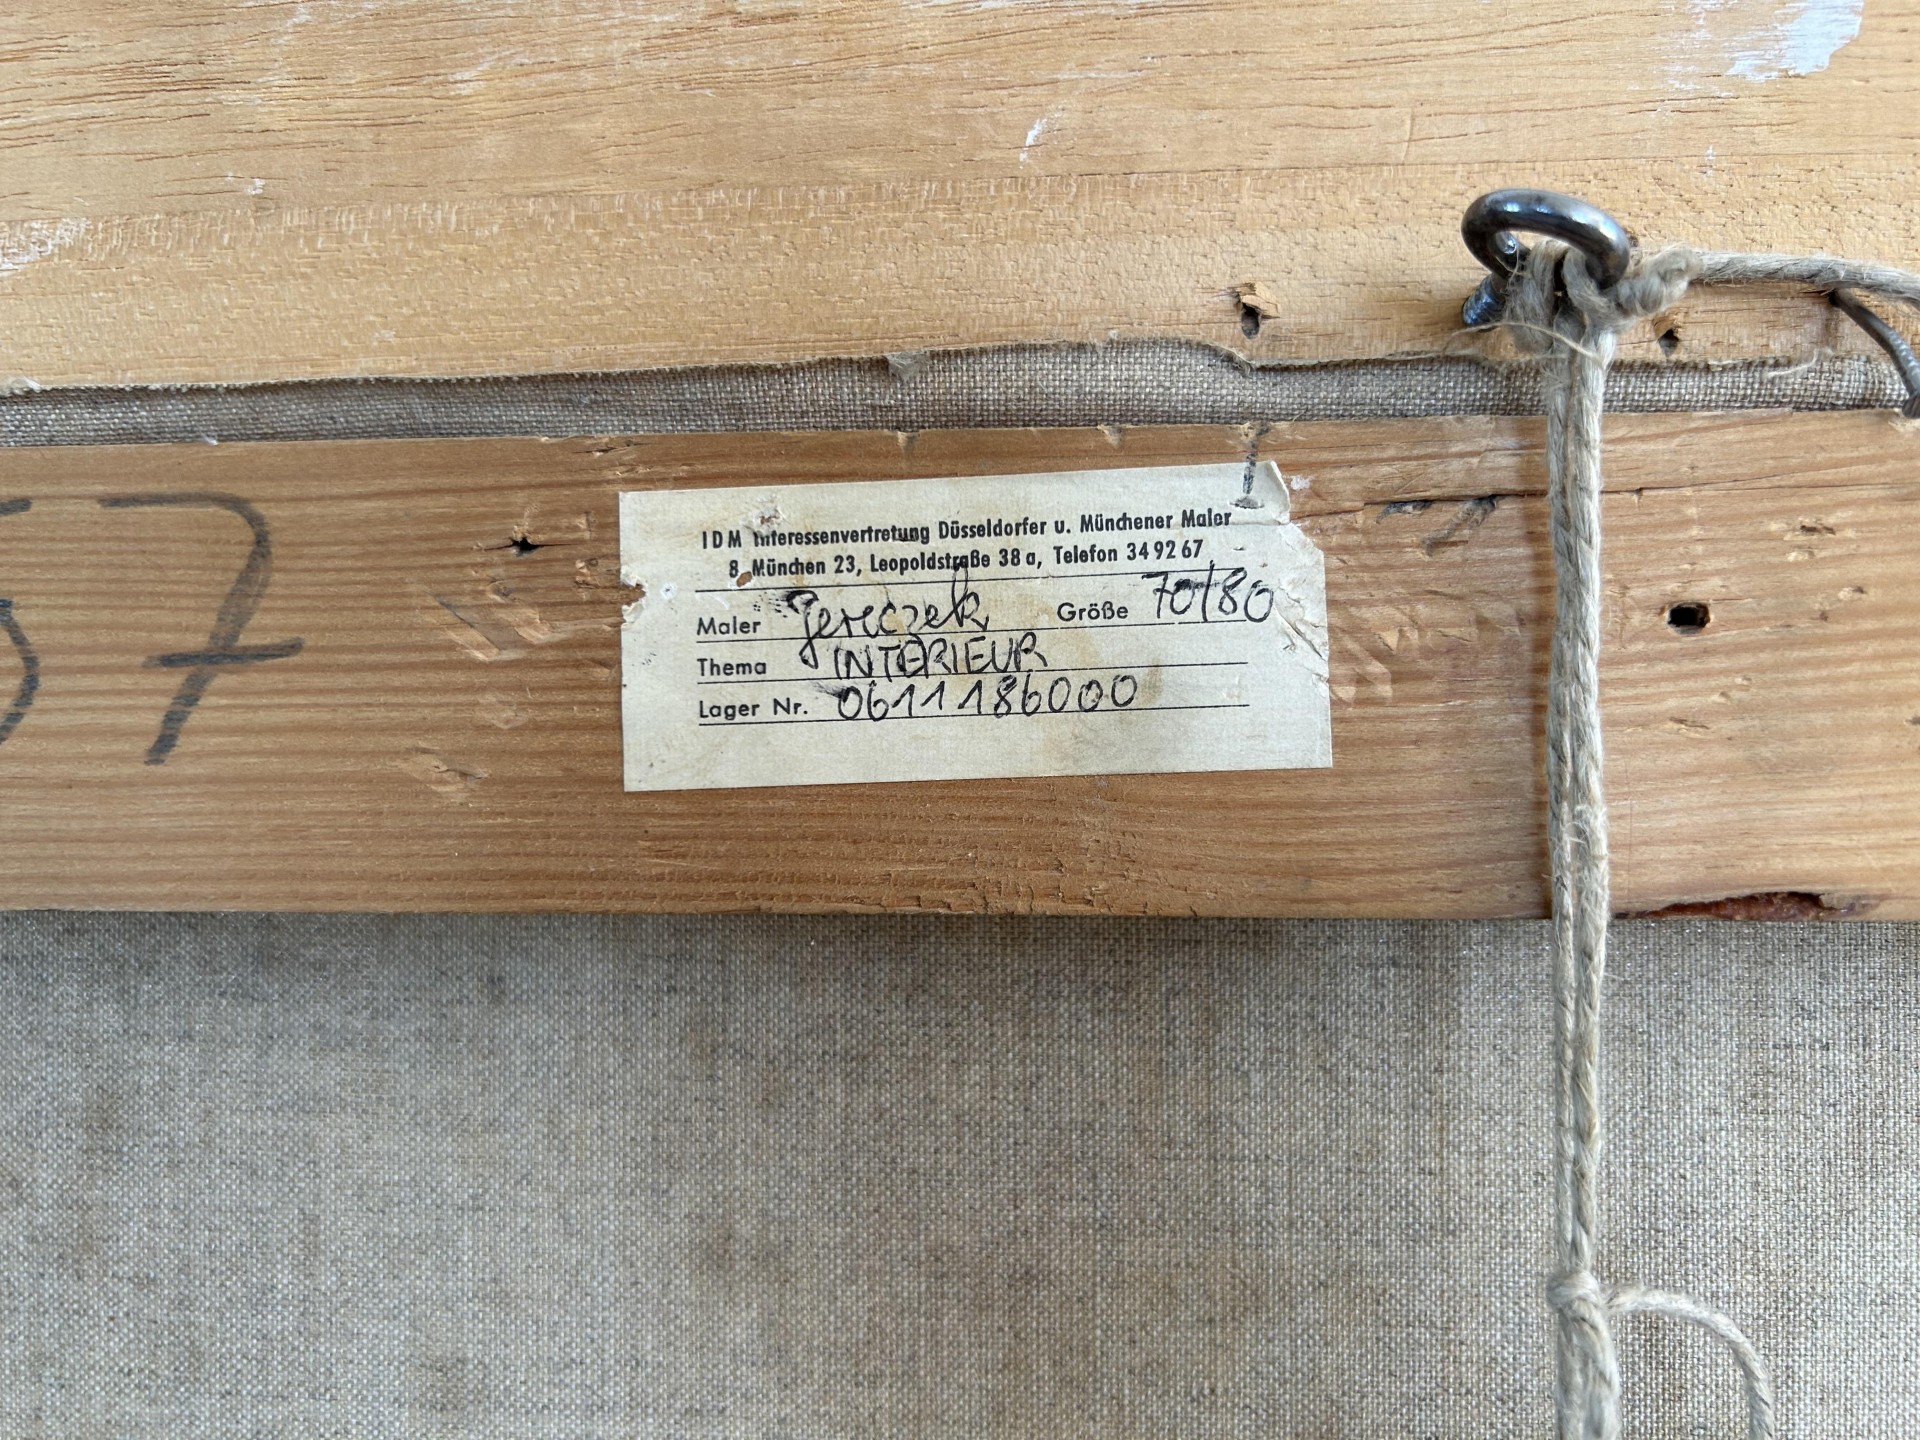 IDM Interessenvertretung Düsseldorfer u. Münchener Maler
8 München 23, Leopoldstraße 38 a, Telefon 34 92 67
Maler Gereczek Größe 70/80
Thema INTERIEUR
Lager Nr. 06111186000
57